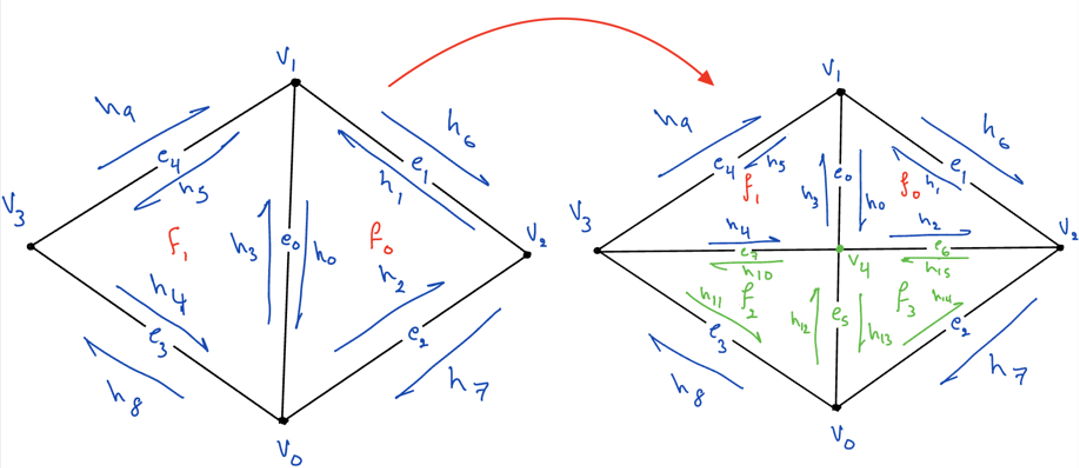 V1
h9
h6
e4
e1
h5
h1
V3
f1
h3
e0
h0
f0
V2
h2
h4
e3
e2
h8
h7
V0
V1
h9
h6
e4
h5
e1
f1
h3
e0
h0
f0
h1
V3
h4
h2
V2
e7
e6
h10
V4
h15
h11
f2
h12
e5
h13
f3
h14
e3
e2
h8
h7
V0